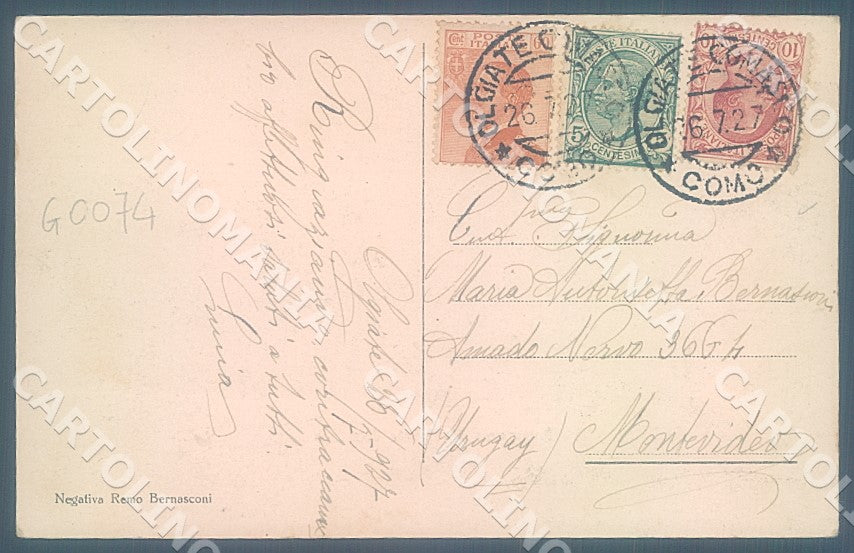 G0074
Olgiate 26/7-927
Ringraziando, contraccambio
affettuosi saluti a tutti.
Luisa
Negativa Remo Bernasconi
POSTE ITALIANE
Cent 60
POSTE ITALIANE
5 CENTESIMI
10
OLGIATE COMASCO
26.7.27
COMO
OLGIATE COMASCO
26.7.27
COMO
Gent. Signorina
Maria Antonietta Bernasconi
Amado Nervo 3664
(Uruguay) Montevideo
CARTOLINOMANIA